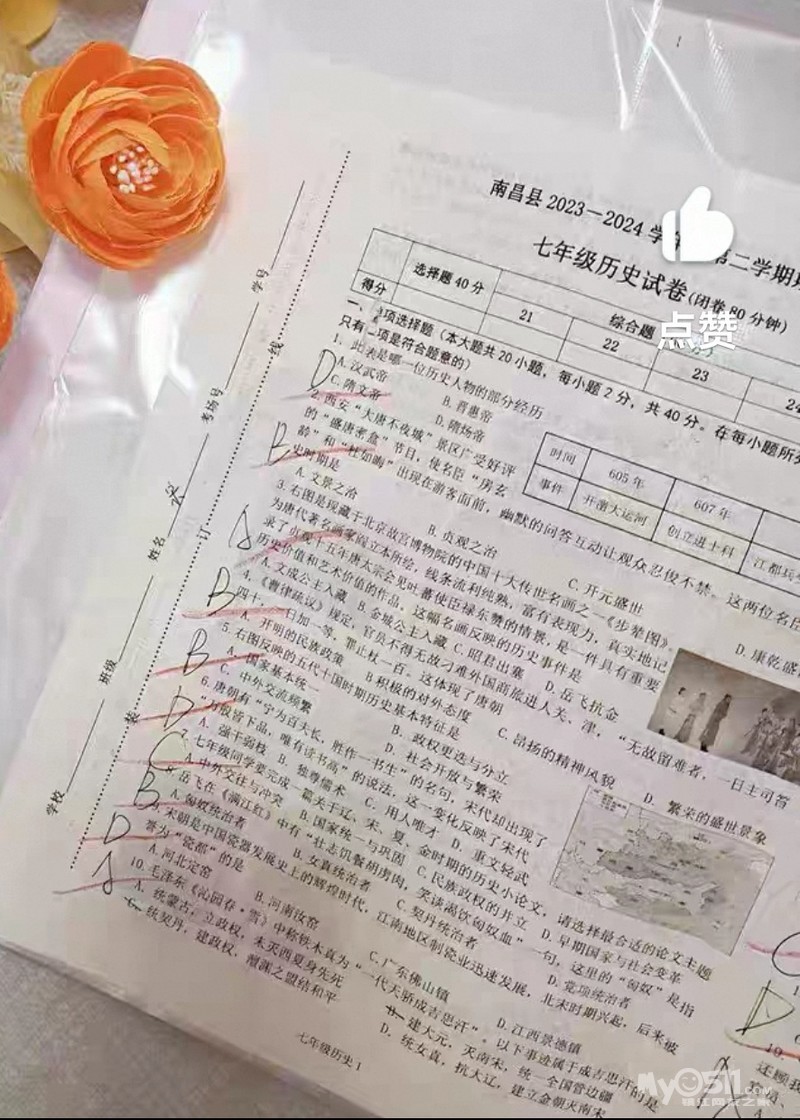 南昌县 2023－2024 学 第二学期
七年级历史试卷(闭卷 80 分钟)
点赞
选择题 40 分
综合题
得分
21
22
23
24
学号
考场号
姓名
班级
学校
线
订
装
一、 项选择题（本大题共 20 小题，每小题 2 分，共 40 分。在每小题所列
只有 项是符合题意的）
1. 此表是哪一位历史人物的部分经历
A. 汉武帝 B. 晋惠帝
C. 隋文帝 D. 隋炀帝
时间 605 年 607 年
事件 开凿大运河 创立进士科 江都兵
D
2. 西安“大唐不夜城”景区广受好评
的“盛唐密盒”节目，使名臣“房玄
龄”和“杜如晦”出现在游客面前，幽默的问答互动让观众忍俊不禁。这两位名臣
史时期是
A. 文景之治 B. 贞观之治 C. 开元盛世 D. 康乾盛
B
3. 右图是现藏于北京故宫博物院的中国十大传世名画之一《步辇图》。
为唐代著名画家阎立本所绘，线条流利纯熟，富有表现力，真实地记
录了贞观十五年唐太宗会见吐蕃使臣禄东赞的情景，是一件具有重要
历史价值和艺术价值的作品。这幅名画反映的历史事件是
A. 文成公主入藏 B. 金城公主入藏 C. 昭君出塞 D. 岳飞抗金
A
4. 《唐律疏议》规定，官员不得无故刁难外国商旅进人关、津，“无故留难者，一日主司笞
四十， 日加一等，罪止杖一百。这体现了唐朝
A. 开明的民族政策 B 积极的对外态度 C. 昂扬的精神风貌 D. 繁荣的盛世景象
B
5. 右图反映的五代十国时期历史基本特征是
A. 国家基本统一 B. 政权更迭与分立
C. 中外交流频繁 D. 社会开放与繁荣
B
6. 唐朝有“宁为百夫长，胜作一书生”的名句，宋代却出现了
“万般皆下品，唯有读书高”的说法，这一变化反映了宋代
A. 强干弱枝 B. 独尊儒术 C. 用人唯才 D. 重文轻武
D
7. 七年级同学要完成一篇关于辽、宋、夏、金时期的历史小论文，请选择最合适的论文主题
A. 中外交往与冲突 B. 国家统一与巩固 C. 民族政权的并立 D. 早期国家与社会变革
C
8. 岳飞在《满江红》中有“壮志饥餐胡虏肉，笑谈渴饮匈奴血”一句，这里的“匈奴”是指
A. 匈奴统治者 B. 女真统治者 C. 契丹统治者 D. 党项统治者
B
9. 宋朝是中国瓷器发展史上的辉煌时代，江南地区制瓷业迅速发展，北宋时期兴起，后来被
誉为“瓷都”的是
A. 河北定窑 B. 河南汝窑 C. 广东佛山镇 D. 江西景德镇
D
10. 毛泽东《沁园春·雪》中称铁木真为“一代天骄成吉思汗”。以下事迹属于成吉思汗的是
A. 统蒙古，立政权，未灭西夏身先死 B. 建大元，灭南宋，统一全国管边疆
C. 统契丹，建政权，澶渊之盟结和平 D. 统女真，抗大辽，建立金朝灭南宋
A
七年级历史 1
D
还顾我
My0511.com